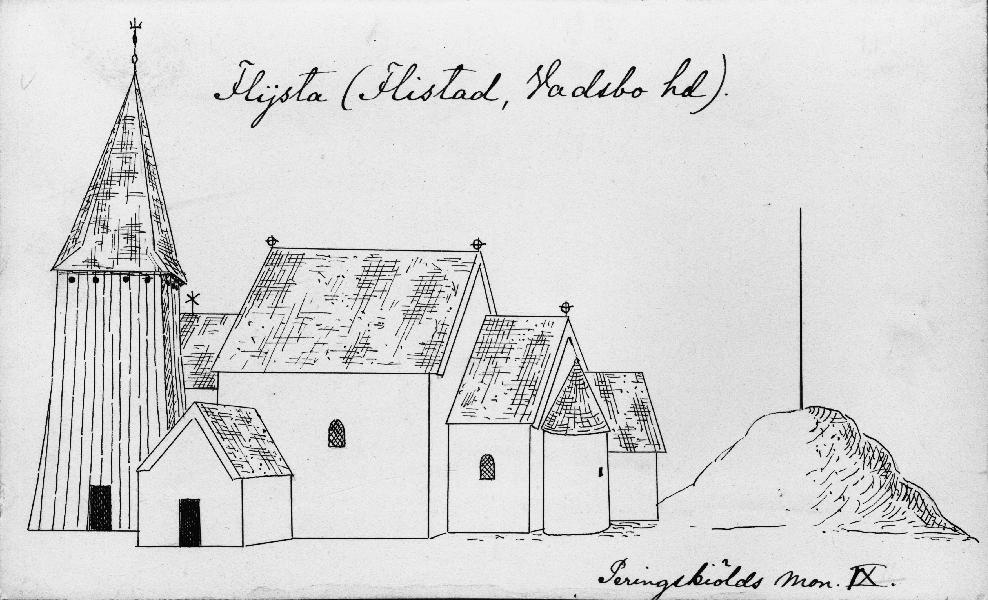 Flÿsta (Flistad, Vadsbo hd).
Peringskiölds Mon. IX.